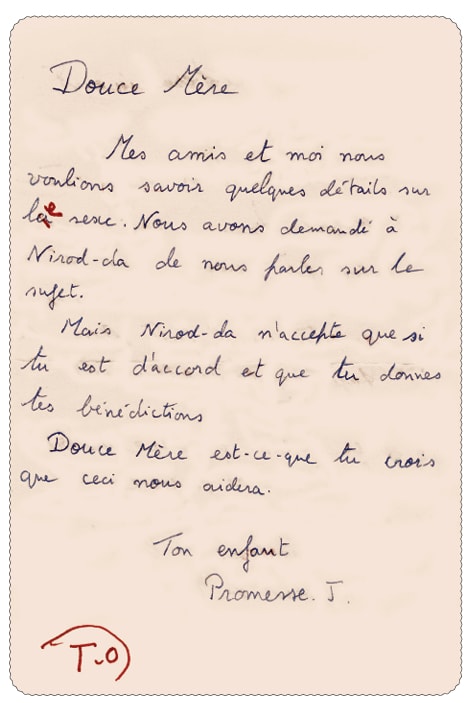 Douce Mère
Mes amis et moi nous
voulions savoir quelques détails sur
la e sexe. Nous avons demandé à
Nirod-da de nous parler sur le
sujet.
Mais Nirod-da n'accepte que si
tu est d'accord et que tu donnes
tes bénédictions
Douce Mère est-ce-que tu crois
que ceci nous aidera.
Ton enfant
Promesse. J.
T.O